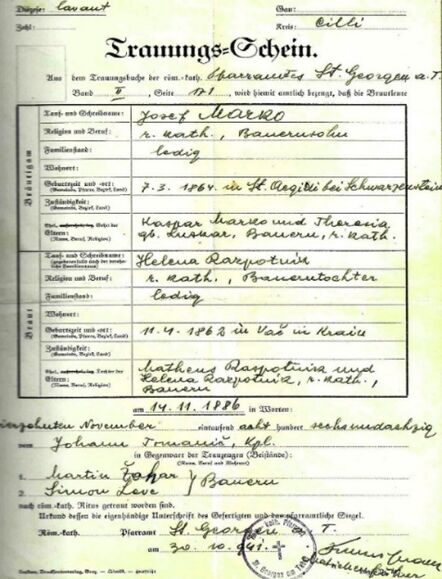 Diözese: Lavant Gau:
Zahl: Kreis: Cilli
Trauungs-Schein.
Aus dem Trauungsbuche der röm.-kath. Pfarramtes St. Georgen a. T.
Band II, Seite 171, wird hiemit amtlich bezeugt, daß die Brautleute
Bräutigam
Tauf- und Schreibname: Josef Marko
Religion und Beruf: r. kath., Bauernsohn
Familienstand: ledig
Wohnort:
Geburtszeit und -ort: 7.3.1864 in St. Aegidi bei Schwarzenstein
(Gemeinde, Pfarre, Bezirk, Land)
Zuständigkeit:
(Gemeinde, Bezirk, Land)
Ehel., Sohn der Kaspar Marko und Theresia
Eltern: gb. Luskar, Bauern, r. kath.
(Name, Beruf, Religion)
Braut
Tauf- und Schreibname: Helena Razpotnik
Religion und Beruf: r. kath., Bauerntochter
Familienstand: ledig
Wohnort:
Geburtszeit und -ort: 11.4.1862 in Vač in Krain
(Gemeinde, Pfarre, Bezirk, Land)
Zuständigkeit:
(Gemeinde, Bezirk, Land)
Ehel., Tochter der Matheus Razpotnik und
Eltern: Helena Razpotnik, r. kath.,
(Name, Beruf, Religion) Bauern
am 14.11.1886 in Worten:
vierzehnten November eintausend acht hundert sechsundachtzig
vom Johann Tomanič, Kpl.
in Gegenwart der Trauzeugen (Beistände):
(Name, Beruf und Wohnort)
1. Martin Žohar } Bauern
2. Simon
nach röm.-kath. Ritus getraut worden sind.
Urkund dessen die eigenhändige Unterschrift des Gefertigten und das pfarramtliche Siegel.
Röm.-kath. Pfarramt St. Georgen T.
am 30.10.941.